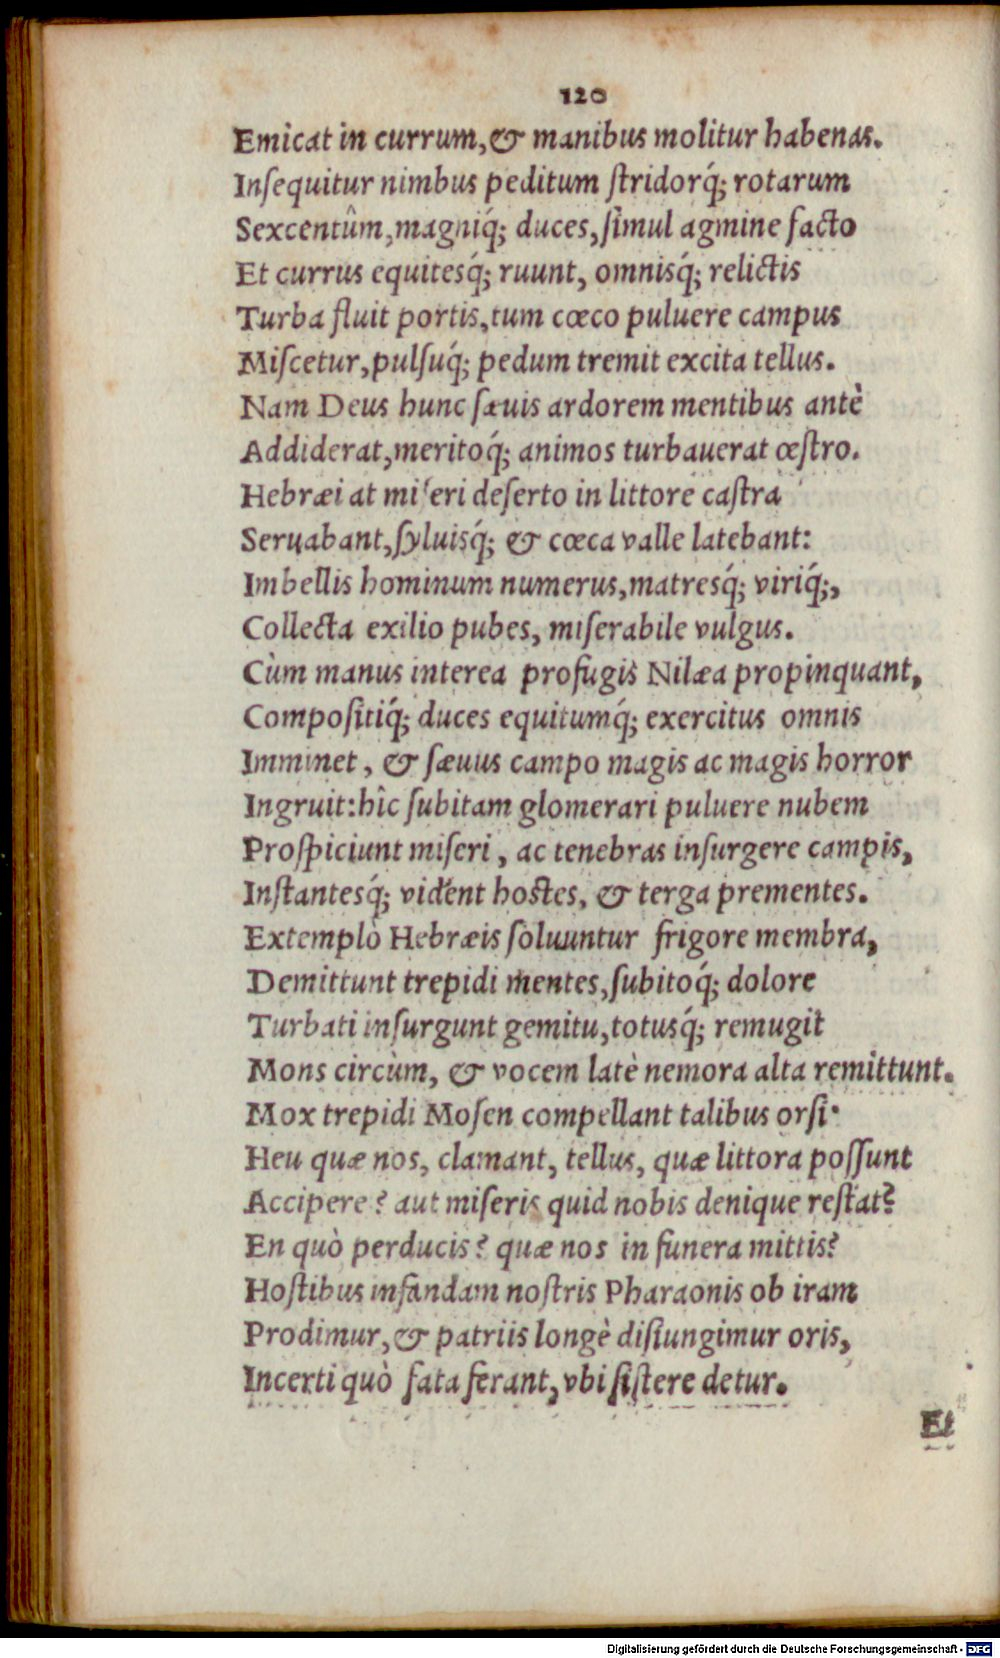 120
Emicat in currum, & manibus molitur habenas.
Inſequitur nimbus peditum ſtridorq́; rotarum
Sexcentûm, magniq́; duces, ſimul agmine facto
Et currus equitesq́; ruunt, omnisq́; relictis
Turba fluit portis, tum cœco puluere campus
Miſcetur, pulſuq́; pedum tremit excita tellus.
Nam Deus hunc ſæuis ardorem mentibus antè
Addiderat, meritoq́; animos turbauerat œſtro.
Hebræi at miſeri deſerto in littore caſtra
Seruabant, ſyluisq́; & cœca valle latebant:
Imbellis hominum numerus, matresq́; viriq́;,
Collecta exilio pubes, miſerabile vulgus.
Cùm manus interea profugis Nilæa propinquant,
Compoſitiq́; duces equitumq́; exercitus omnis
Imminet, & ſæuus campo magis ac magis horror
Ingruit: hîc ſubitam glomerari puluere nubem
Proſpiciunt miſeri, ac tenebras inſurgere campis,
Inſtantesq́; vident hoſtes, & terga prementes.
Extemplò Hebræis ſoluuntur frigore membra,
Demittunt trepidi mentes, ſubitoq́; dolore
Turbati inſurgunt gemitu, totusq́; remugit
Mons circùm, & vocem latè nemora alta remittunt.
Mox trepidi Moſen compellant talibus orſi·
Heu quæ nos, clamant, tellus, quæ littora poſſunt
Accipere? aut miſeris quid nobis denique reſtat?
En quò perducis? quæ nos in funera mittis?
Hoſtibus infandam noſtris Pharaonis ob iram
Prodimur, & patriis longè diſiungimur oris,
Incerti quò fata ferant, vbi ſiſtere detur.
Et
Digitalisierung gefördert durch die Deutsche Forschungsgemeinschaft - DFG